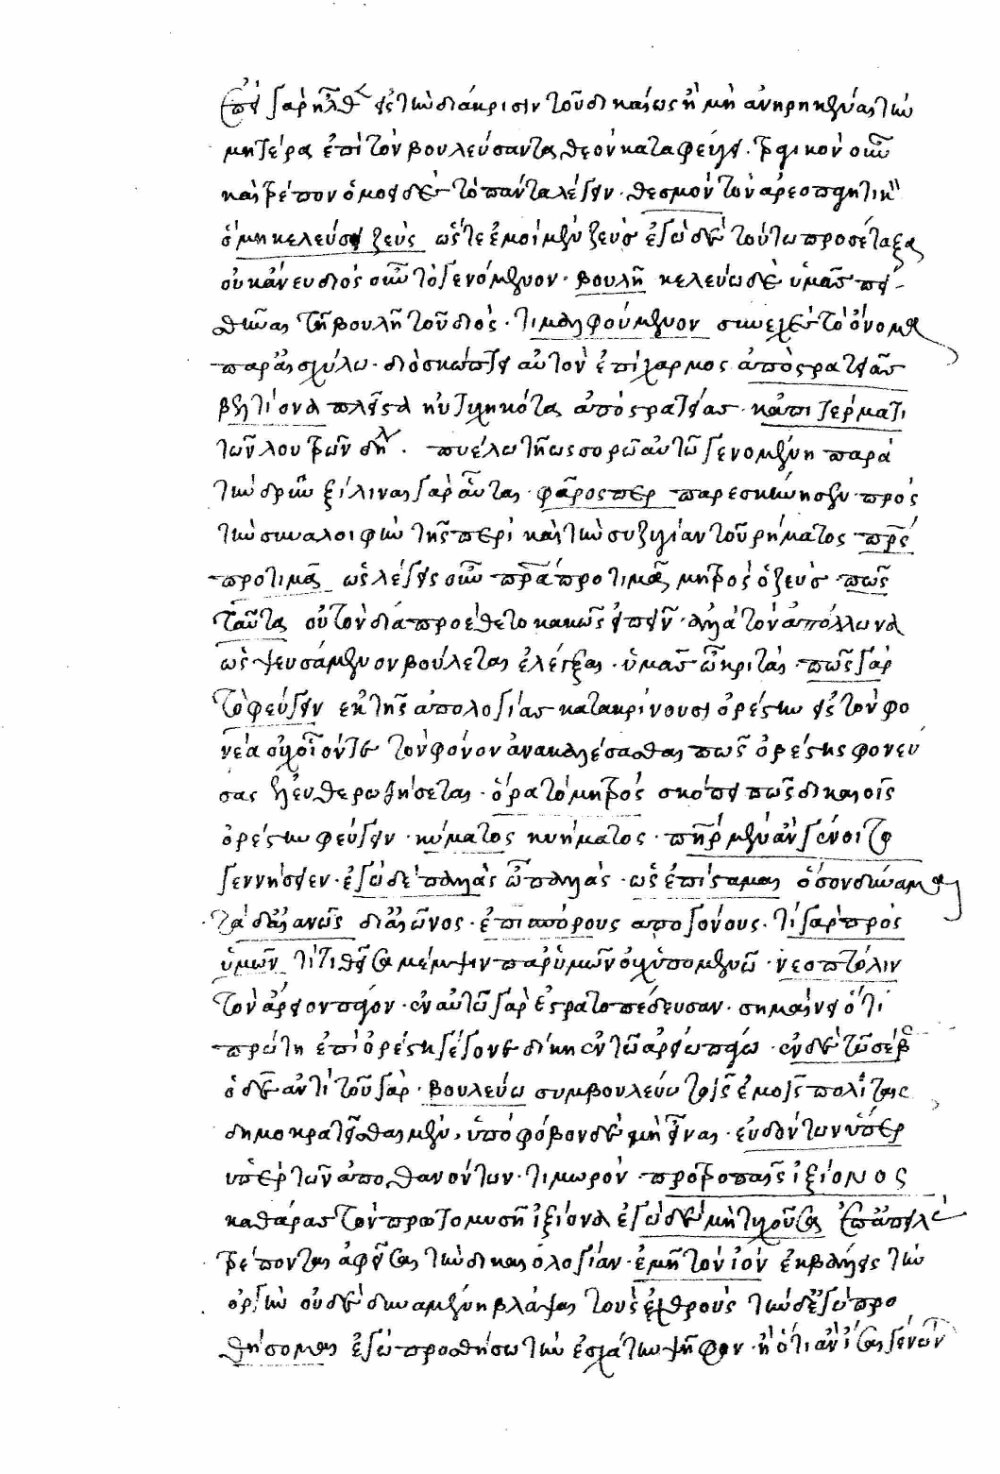 ἐπεὶ γὰρ ἦλθεν εἰς τὴν διάκρισιν τοῦ δικαίως ἢ μὴ ἀνῃρηκέναι τὴν
μητέρα ἐπὶ τὸν βουλεύσαντα θεὸν καταφεύγει. τραγικὸν οὖν
καὶ πρέπον ὅμως δὲ τὸ πάντα λέγειν. θεσμὸν τὸν ἀρεοπαγητικὸν
ὃ μὴ κελεύσει ζεύς ὥστε ἐμοὶ μὲν ζεὺς ἐγὼ δὲ τούτῳ προσέταξα
οὐκ ἄνευ διός οὖν τὸ γενόμενον. βουλῇ κελεύω δὲ ὑμᾶς πει
θῆναι τῇ βουλῇ τοῦ διός. τιμαλφούμενον συνεχὲς τὸ ὄνομα
παρ' αἰσχύλῳ. διὸ σκώπτει αὐτὸν ἐπίχαρμος ἀπὸ στρατείας
βελτίονα πλεῖστα ηὐτυχηκότα ἀπὸ στρατείας. κἀπὶ τέρματι
τῶν λουτρῶν δηλ. πυέλῳ τῇ ὡς σορῷ αὐτῷ γενομένῃ παρὰ
τὴν δροίην ξύλιναι γὰρ αὗται. φᾶρος περ παρεσκήνησεν. πρὸς
τὴν συναλοιφὴν τῆς περὶ καὶ τὴν συζυγίαν τοῦ ῥήματος πρς
προτιμᾷ ὡς λέγεις οὖν πρα προτιμᾷ μητρὸς ὁ ζεύς. πῶς
ταῦτα οὐ τὸν δία προέθετο κακῶς εἰπεῖν. ἀλλὰ τὸν ἀπόλλωνα
ὡς ψευσάμενον βούλεται ἐλέγξαι. ὑμᾶς ὦ κριταί. πῶς γὰρ
τὸ φεύγειν ἐκ τῆς ἀπολογίας κατακρίνουσι ὀρέστην εἰς τὸν φο
νέα οἱ γὰρ οἷοί τε τὸν φόνον ἀνακαλέσασθαι πῶς ὀρέστης φονεύ
σας ἐλευθερωθήσεται. ὁρᾷ τὸ μητρός σκόπει πῶς δίκαιο εἷς
ὀρέστην φεύγειν. κύματος κυήματος. πατὴρ μὲν ἂν γένοιτο
γεννήσειεν. ἐγὼ δὲ παλλάς ὦ παλλάς. ὡς ἐπίσταμαι ὅσον δύναμαι
τὰ δ' αἰανῶς δι' αἰῶνος. ἐπισπόρους ἀπογόνους. τί γὰρ πρὸς
ὑμῶν τί τιθεῖσα μέμψιν παρ' ὑμῶν οὐχ ὑπομενῶ. νεόπτολιν
τὸν ἄρειον πάγον. ἐν αὐτῷ γὰρ ἐστρατοπέδευσαν. σημαίνει ὅτι
πρώτη ἐπὶ ὀρέστῃ γέγονε δίκη ἐν τῷ ἀρείῳ πάγῳ. ἐν δὲ τῷ σέβας
ὁ δὲ ἀντὶ τοῦ γάρ. βουλεύω συμβουλεύω τοῖς ἐμοῖς πολίταις
δημοκρατεῖσθαι μέν, ὑπὸ φόβον δὲ μὴ εἶναι. εὑδόντων ὕπερ
ὑπὲρ τῶν ἀποθανόντων. τιμωρόν. προτροπαῖς ἰξίονος
καθάρας τὸν πρωτομυσῆ ἰξίονα ἐγὼ δὲ μὴ τυχοῦσα ἐπαπειλ
τρέπονται ἀφεῖσαι τὴν δικαιολογίαν. ἐμῇ τὸν ἰόν ἐκβαλεῖς τὴν
ὀργὴν οὐδὲ δυναμένη βλάψαι τοὺς ἐχθροὺς τήνδ' ἐγὼ προ
θήσομαι ἐγὼ προσθήσω τὴν ἐσχάτην ψῆφον. ἢ ὅτι ἂν ἴσαι γένων